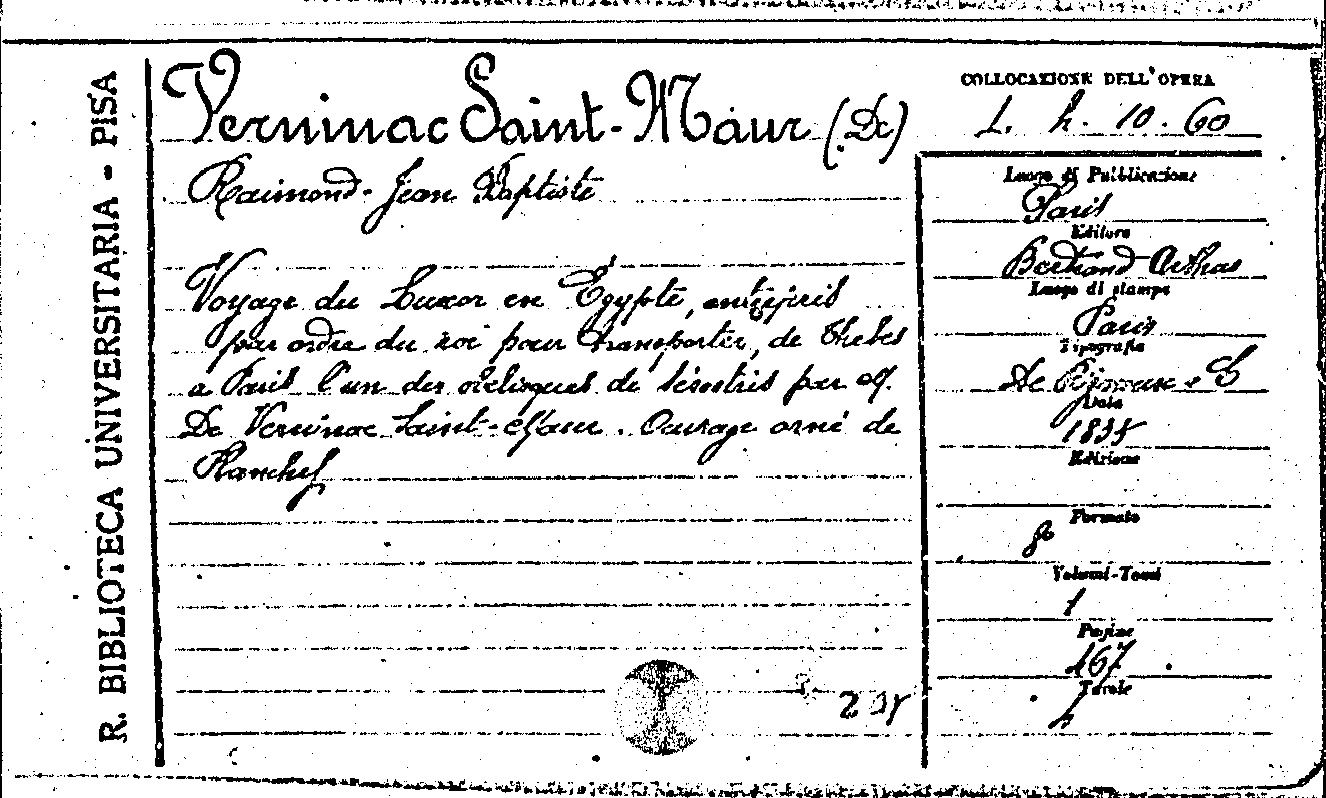 R. BIBLIOTECA UNIVERSITARIA - PISA
Verninac Saint-Maur (De)
Raimond-Jean Baptiste
Voyage du Luxor en Égypte, entrepris
par ordre du roi pour transporter, de Thebes
a Paris l'un des obelisques de Sésostris par M.
De Verninac Saint-Maur. Ouvrage orné de
Planches
COLLOCAZIONE DELL'OPERA
L. h. 10. 60
Luogo di Pubblicazione
Paris
Editore
Bertrand Arthus
Luogo di stampa
Paris
Tipografia
De
Data
1835
Edizione
Formato
8°
Volumi-Tomi
1
Pagine
467
Tavole